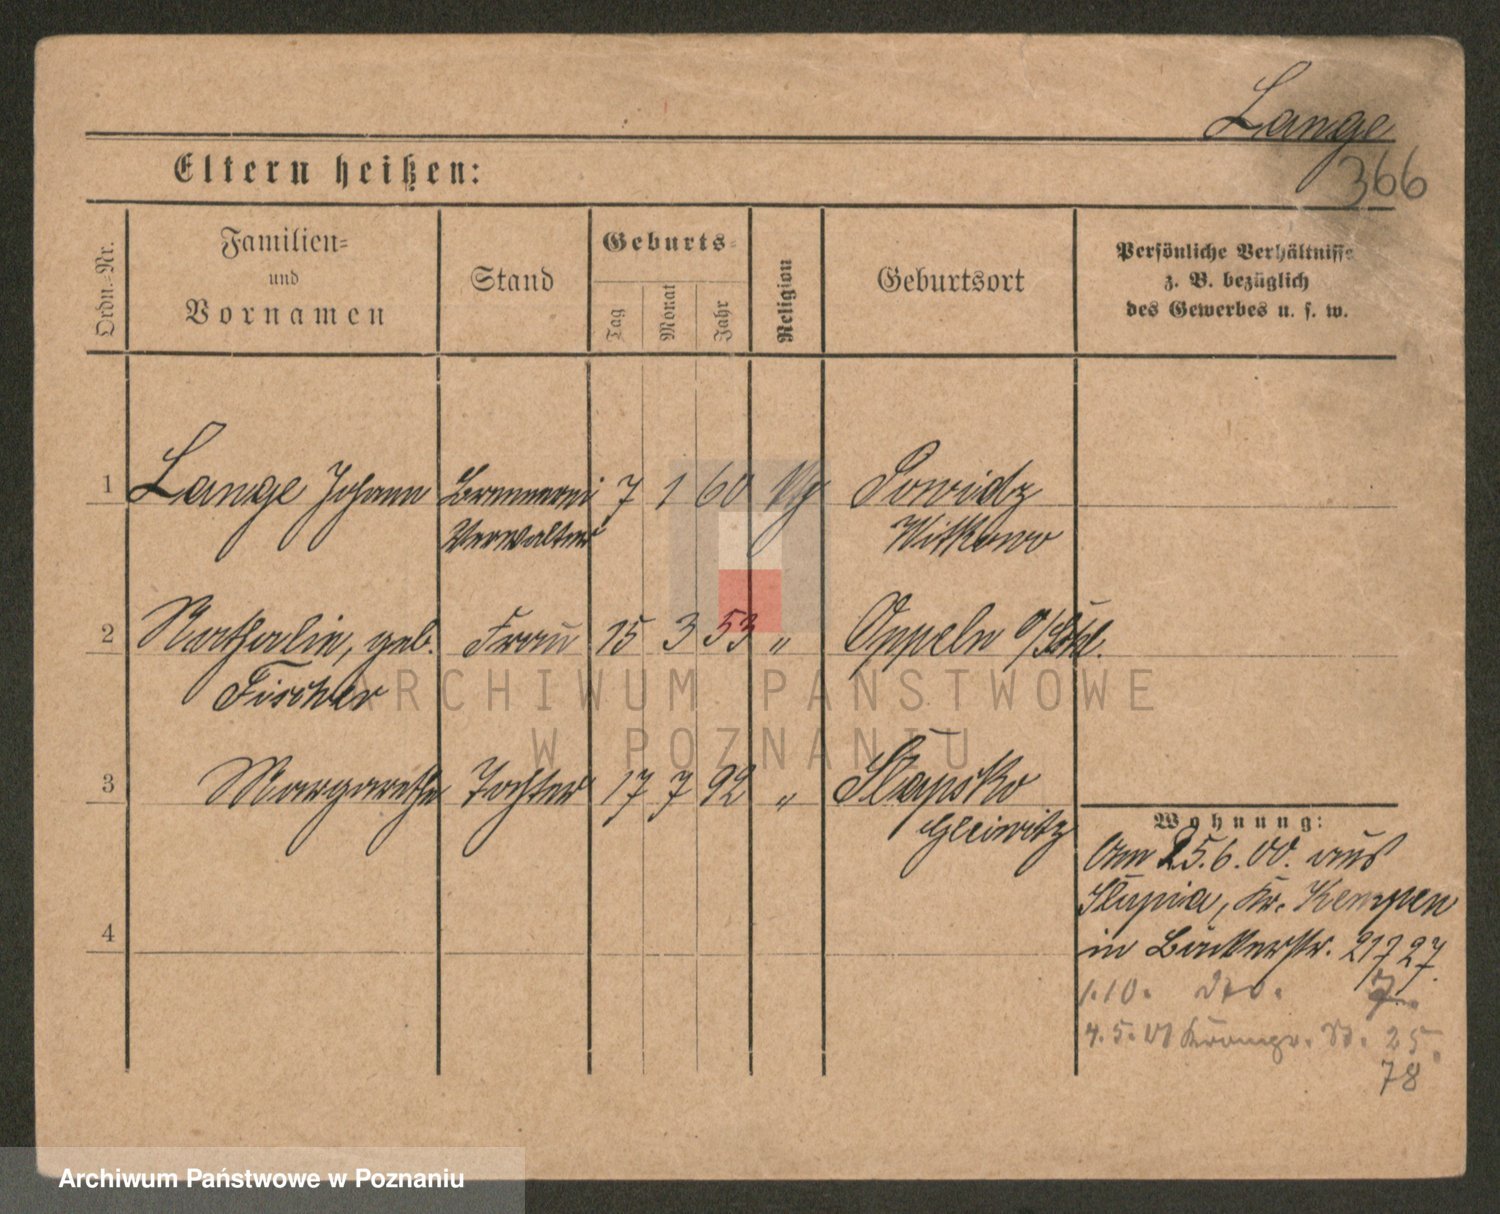 Lange
366
Eltern heißen:
Ordn.-Nr.
Familien-
und
Vornamen
Stand
Geburts-
Tag
Monat
Jahr
Religion
Geburtsort
Persönliche Verhältnisse
z. B. bezüglich
des Gewerbes u. s. w.
1 Lange Johann Brennerei 7 1 60 Powidz
Verwalter Witkowo
2 Nathalie, geb. Frau 15 3 53 " Oppeln o/Schl.
Fischer
3 Margarethe Tochter 17 7 92 " Slupsko
Gleiwitz
4
Wohnung:
Am 25.6.00. aus
Slupia, Kr. Kempen
in Bäckerstr. 21 7 27.
1.10. dto. 7.
4.5.01 25.
78
ARCHIWUM PAŃSTWOWE
W POZNANIU
Archiwum Państwowe w Poznaniu